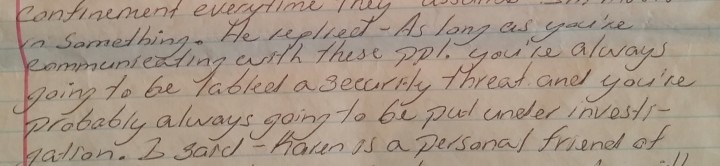 confinement everytime they
in something. He replied - As long as you're
communicating with these ppl. you're always
going to be labled a security threat and you're
probably always going to be put under investi-
gation. I said - Karen is a personal friend of